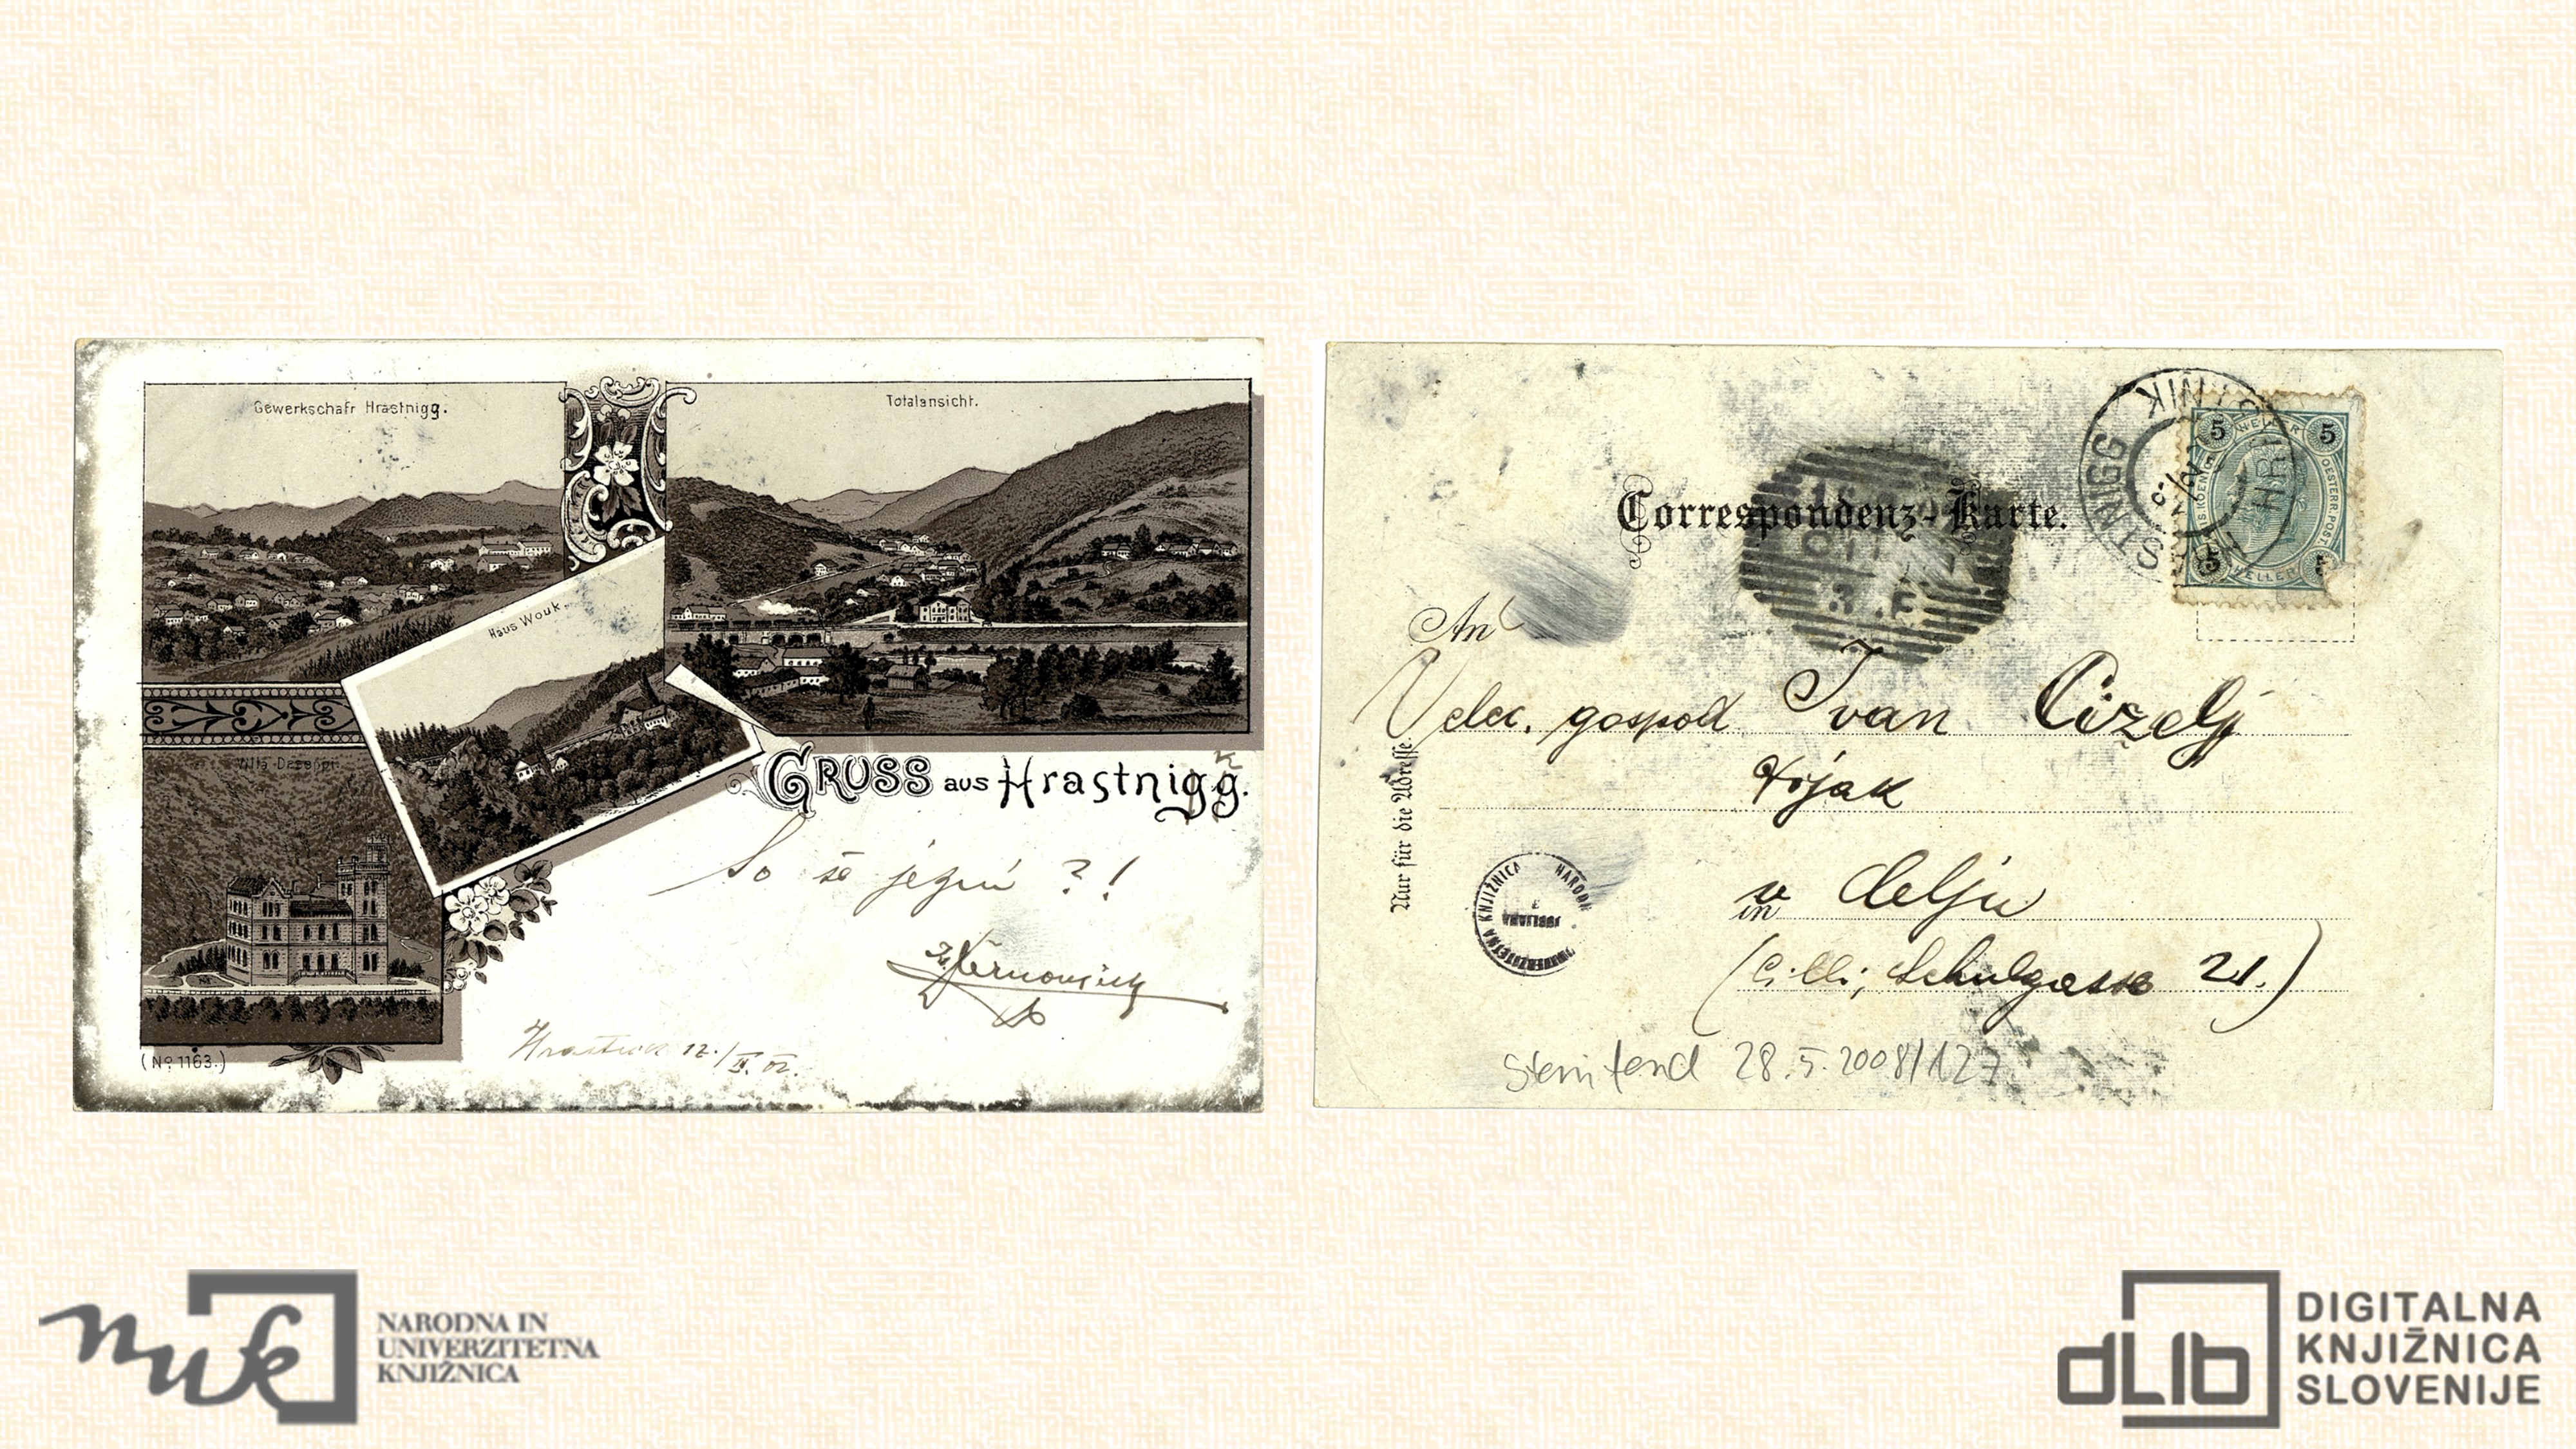 Gewerkschaft Hrastnigg.
Totalansicht.
Haus Wouk.
Villa
GRUSS aus Hrastnigg.
k
So še jezni ?!
Hrastnik 12./II. 02.
(No 1163.)
Correspondenz-Karte.
HRASTNIGG
HRASTNIK
5 HELLER 5
OESTERR. POST.
5 HELLER
An
Velec. gospod Ivan Cizelj
v Celju
in
(Cilli; Schulgasse 21.)
Nur für die Adresse.
NARODNA
UNIVERZITETNA KNJIŽNICA
LJUBLJANA
28.5.2008/127
nuk
NARODNA IN
UNIVERZITETNA
KNJIŽNICA
dLib
DIGITALNA
KNJIŽNICA
SLOVENIJE